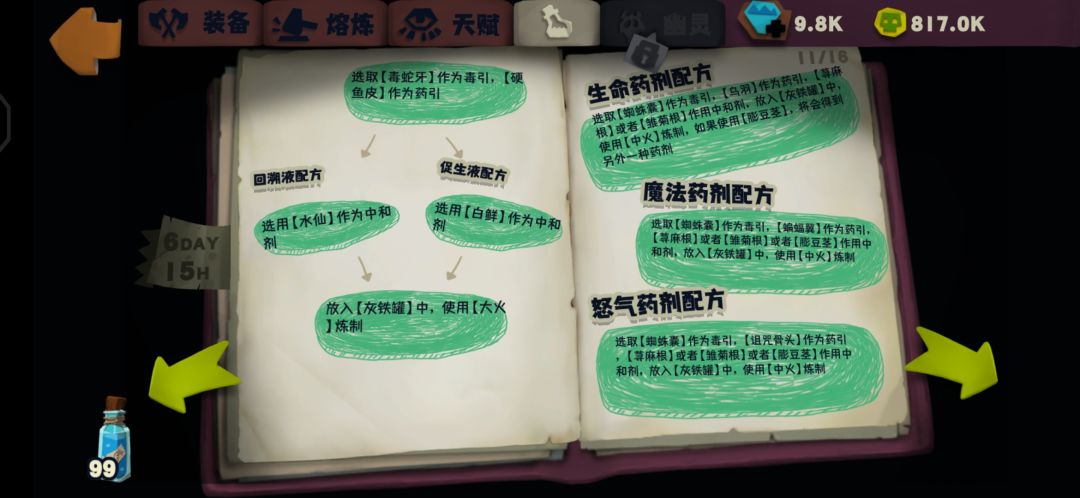 装备
熔炼
天赋
幽灵
9.8K
817.0K
11/16
选取【毒蛇牙】作为毒引，【硬
鱼皮】作为药引
回溯液配方
促生液配方
选用【水仙】作为中和
剂
选用【白鲜】作为中和
剂
放入【灰铁罐】中，使用【大火
】炼制
6DAY
15H
99
生命药剂配方
选取【蜘蛛囊】作为毒引，【鸟羽】作为药引，【荨麻
根】或者【雏菊根】作用中和剂，放入【灰铁罐】中，
使用【中火】炼制，如果使用【膨豆茎】，将会得到
另外一种药剂
魔法药剂配方
选取【蜘蛛囊】作为毒引，【蝙蝠翼】作为药引，
【荨麻根】或者【雏菊根】或者【膨豆茎】作用中
和剂，放入【灰铁罐】中，使用【中火】炼制
怒气药剂配方
选取【蜘蛛囊】作为毒引，【诅咒骨头】作为药引
，【荨麻根】或者【雏菊根】或者【膨豆茎】作用中
和剂，放入【灰铁罐】中，使用【中火】炼制